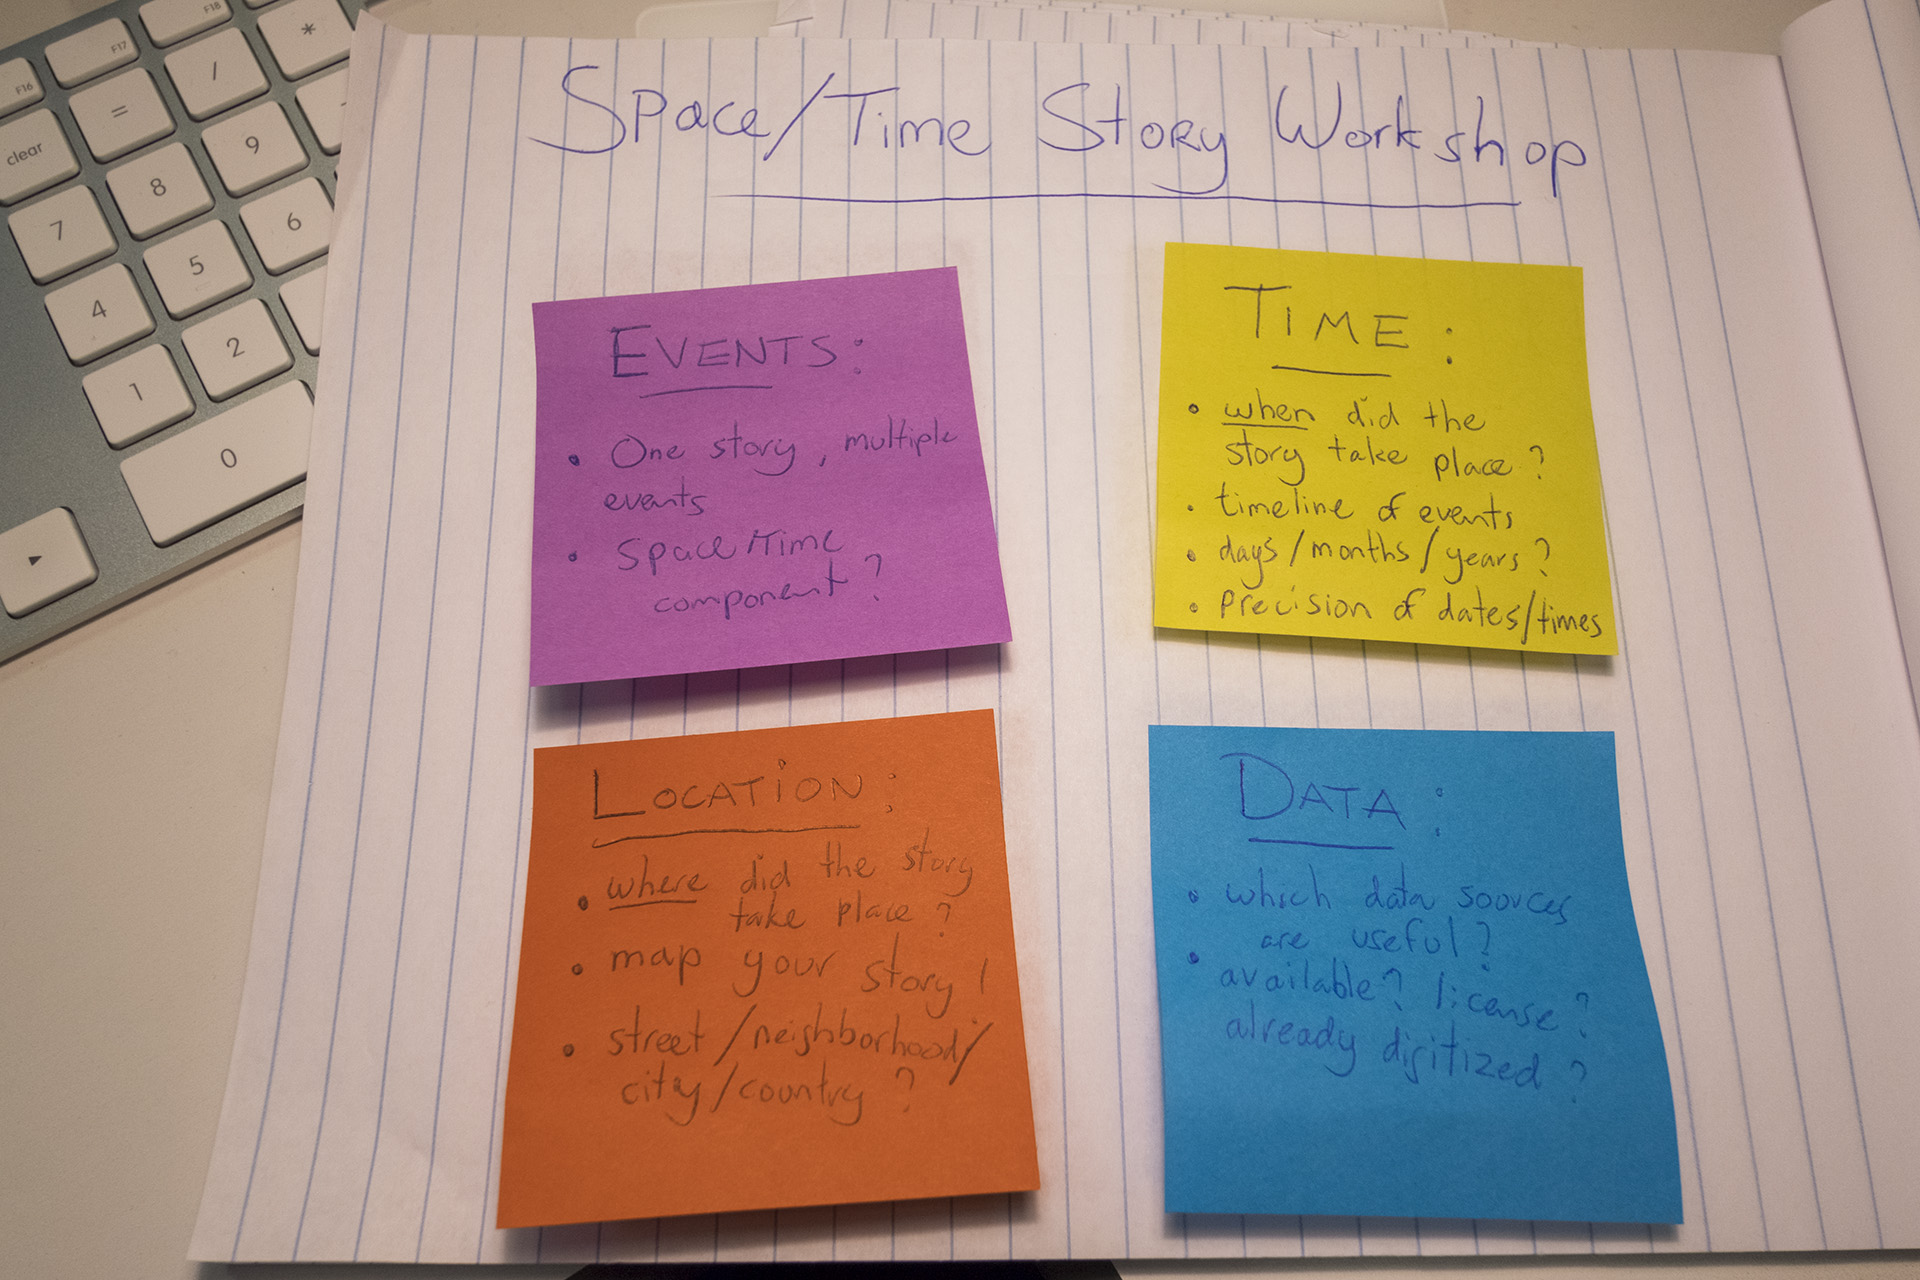 Space/Time Story Workshop
EVENTS:
• One story, multiple
events
• Space/Time
component?
TIME:
• when did the
story take place?
• timeline of events
• days/months/years?
• precision of dates/times
LOCATION:
• where did the story
take place?
• map your story!
• street/neighborhood/
city/country?
DATA:
• which data sources
are useful?
• available? license?
already digitized?
F16
F17
F18
clear
=
/
*
7
8
9
4
5
6
1
2
0